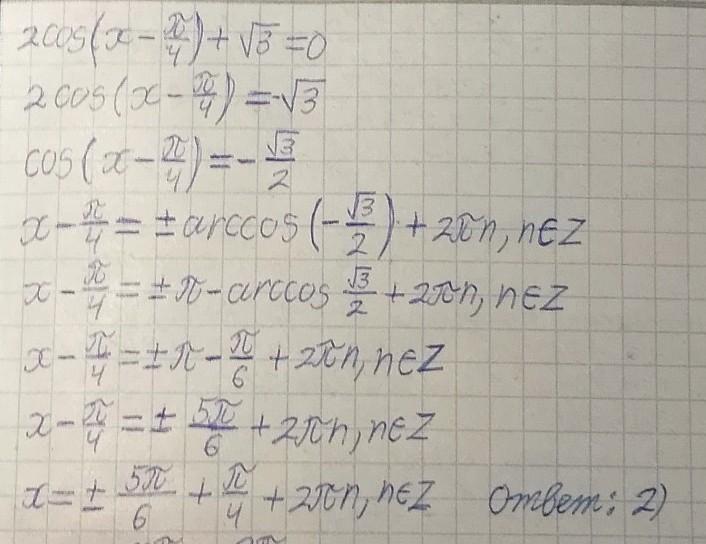 2cos(x - π/4) + √3 = 0
2cos(x - π/4) = -√3
cos(x - π/4) = - √3/2
x - π/4 = ± arccos(-√3/2) + 2πn, n∈Z
x - π/4 = ± π - arccos √3/2 + 2πn, n∈Z
x - π/4 = ± π - π/6 + 2πn, n∈Z
x - π/4 = ± 5π/6 + 2πn, n∈Z
x = ± 5π/6 + π/4 + 2πn, n∈Z Ответ: 2)